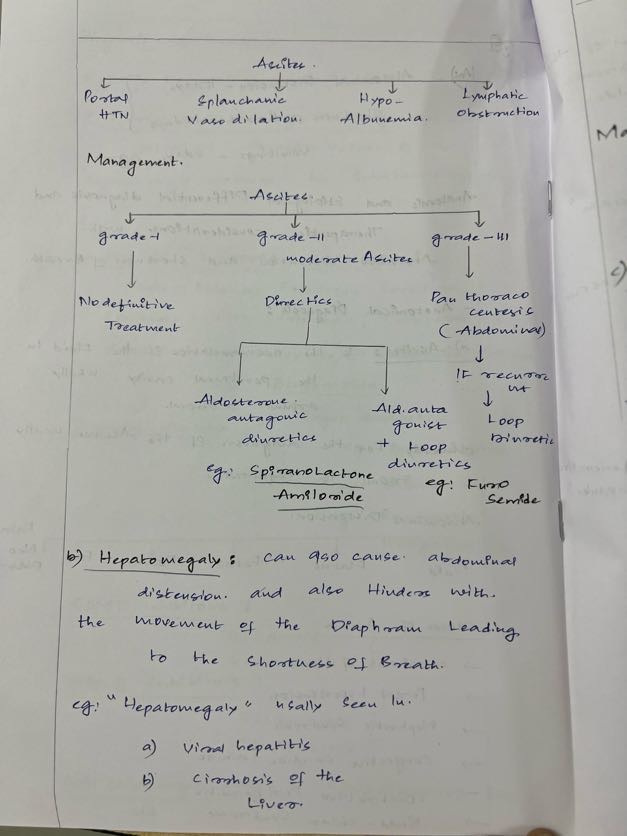 Ascites.
Portal HTN
Splanchanic Vasodilation.
Hypo-Albunemia.
Lymphatic Obstruction
Management.
Ascites.
grade-I
grade-II
grade-III
moderate Ascites
No definitive
Treatment
Pan thoraco
centesis
(Abdominal)
IF recurrent
Loop
Diuretic
Aldosterone
antagonic
diuretics
Ald. anta
gonist
+ Loop
diuretics
eg: Spiranolactone
Amiloride
eg: Furo
Semide
b) Hepatomegaly: can also cause abdominal
distension. and also Hinders with.
the movement of the Diaphram Leading
to the shortness of Breath.
eg: "Hepatomegaly" usally seen In.
a) Viral hepatitis
b) Cirrhosis of the
Liver.
Ma
c)